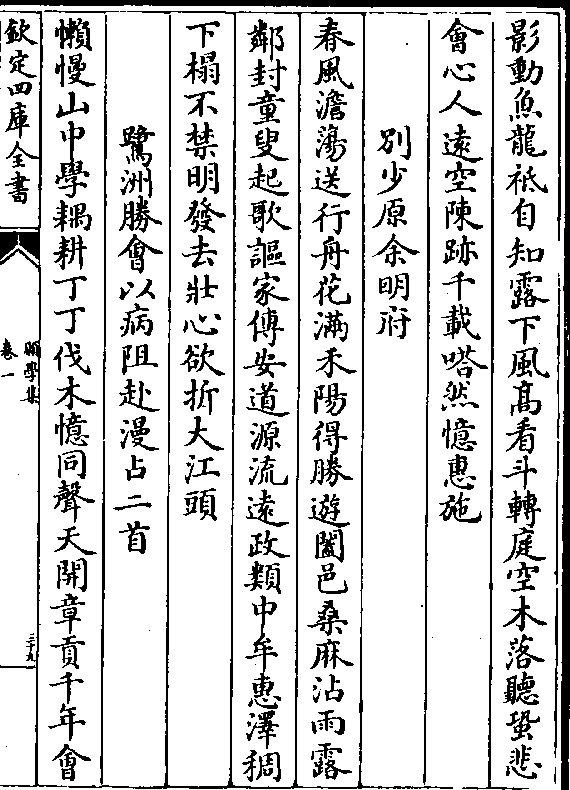 影動魚龍祇自知露下風髙看斗轉庭空木落聽蛩悲
會心人遠空陳跡千載嗒然憶惠施
別少原余明府
春風澹蕩送行舟花滿禾陽得勝遊闔邑桑麻沾雨露
鄰封童叟起歌謳家傳安道源流遠政類中牟惠澤稠
下榻不禁明發去壯心欲折大江頭
鷺洲勝會以病阻赴漫占二首
懶慢山中學耦耕丁丁伐木憶同聲天開章貢千年會
欽定四庫全書
願學集
卷一
三十九